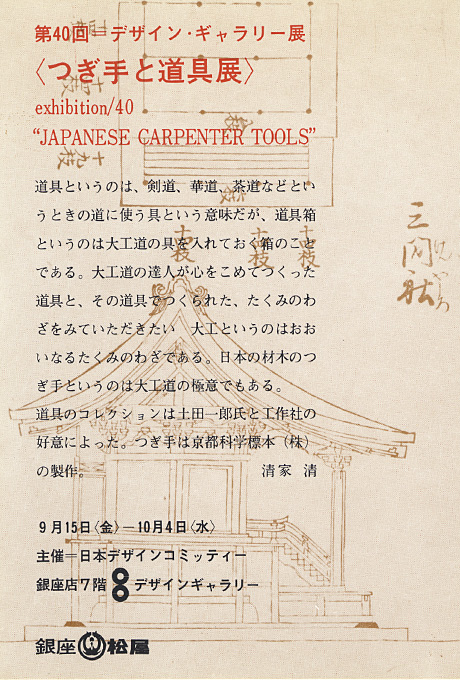 第40回＝デザイン・ギャラリー展
〈つぎ手と道具展〉
exhibition/40
“JAPANESE CARPENTER TOOLS”
道具というのは、剣道、華道、茶道などとい
うときの道に使う具という意味だが、道具箱
というのは大工道の具を入れておく箱のこと
である。大工道の達人が心をこめてつくった
道具と、その道具でつくられた、たくみのわ
ざをみていただきたい　大工というのはおお
いなるたくみのわざである。日本の材木のつ
ぎ手というのは大工道の極意でもある。
道具のコレクションは土田一郎氏と工作社の
好意によった。つぎ手は京都科学標本（株）
の製作。　清家　清
9月15日〈金〉―10月4日〈水〉
主催＝日本デザインコミッティー
銀座店7階 デザインギャラリー
銀座 松屋
十枝
十枝
十枝
六枝
十九枝
三間社